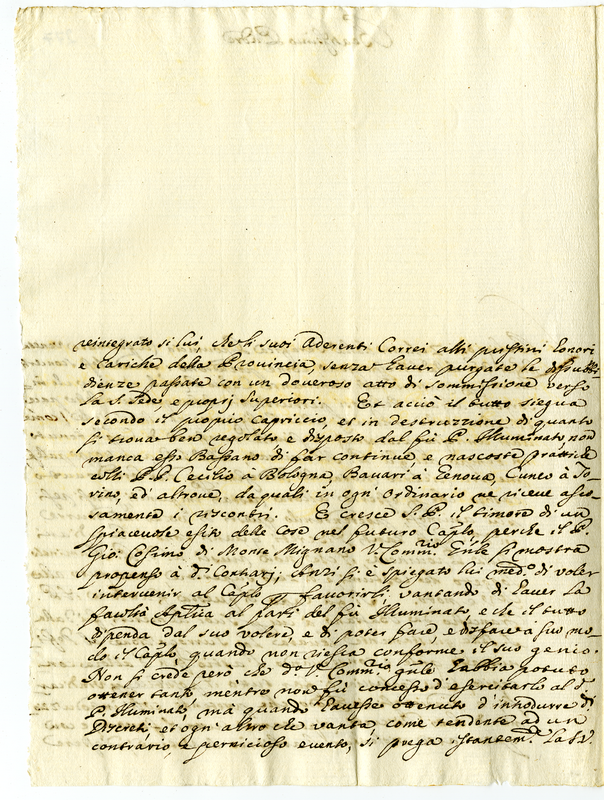 reintegrato si lui, che li suoi Aderenti Correi alli pristini honori
e Cariche della Provincia, senza haver purgate le disoubi-
dienze passate con un doveroso atto di sommissione verso
la S. Sede, e proprj Superiori. Et acciò il tutto siegua
secondo il proprio Capriccio, et in destruzzione di quanto
si trova ben regolato e disposto dal fù P. Illuminato, non
manca esso Bassano di far continue e nascoste prattiche
colli P.P. Cecilio à Bologna, Bavari à Genova, Cuneo à To-
rino, ed' altrove, da quali in ogni ordinario ne riceve asco-
samente i riscontri. Et cresce S.P. il timore di un
spiacevole esito delle cose nel futuro Caplo, perche il P.
Gio: Cosimo di Monte Mignano V. Comm.rio Gnle si mostra
propenso à d.i Contrarj, anzi si è spiegato lui med.o di voler
intervenir al Caplo p favorirli, vantando di haver la
facoltà Aplica al pari del fù Illuminato, e che il tutto
dipenda dal suo volere, e di poter fare, e disfare à suo mo-
do il Caplo quando non riesca conforme il suo genio.
Non si crede però che d.o V. Comm.rio gnle habbia potuto
ottener tanto, mentre non fù concesso d'esercitarlo al d.o
P. Illuminato, mà quando havesse ottenuto d'introdurre di
Discreti, et ogn' altro che vanta, come tendente ad un
contrario, e pernicioso evento, si prega istantem.e la S.V.